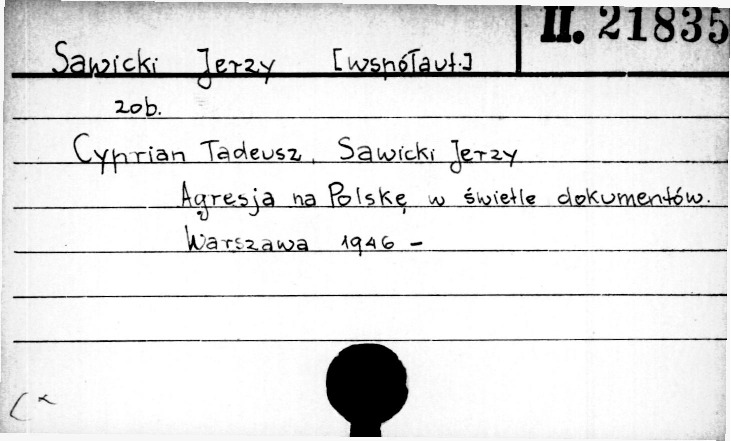 II. 21835
Sawicki Jerzy [współaut.]
zob.
Cyprian Tadeusz, Sawicki Jerzy
Agresja na Polskę w świetle dokumentów.
Warszawa 1946 –